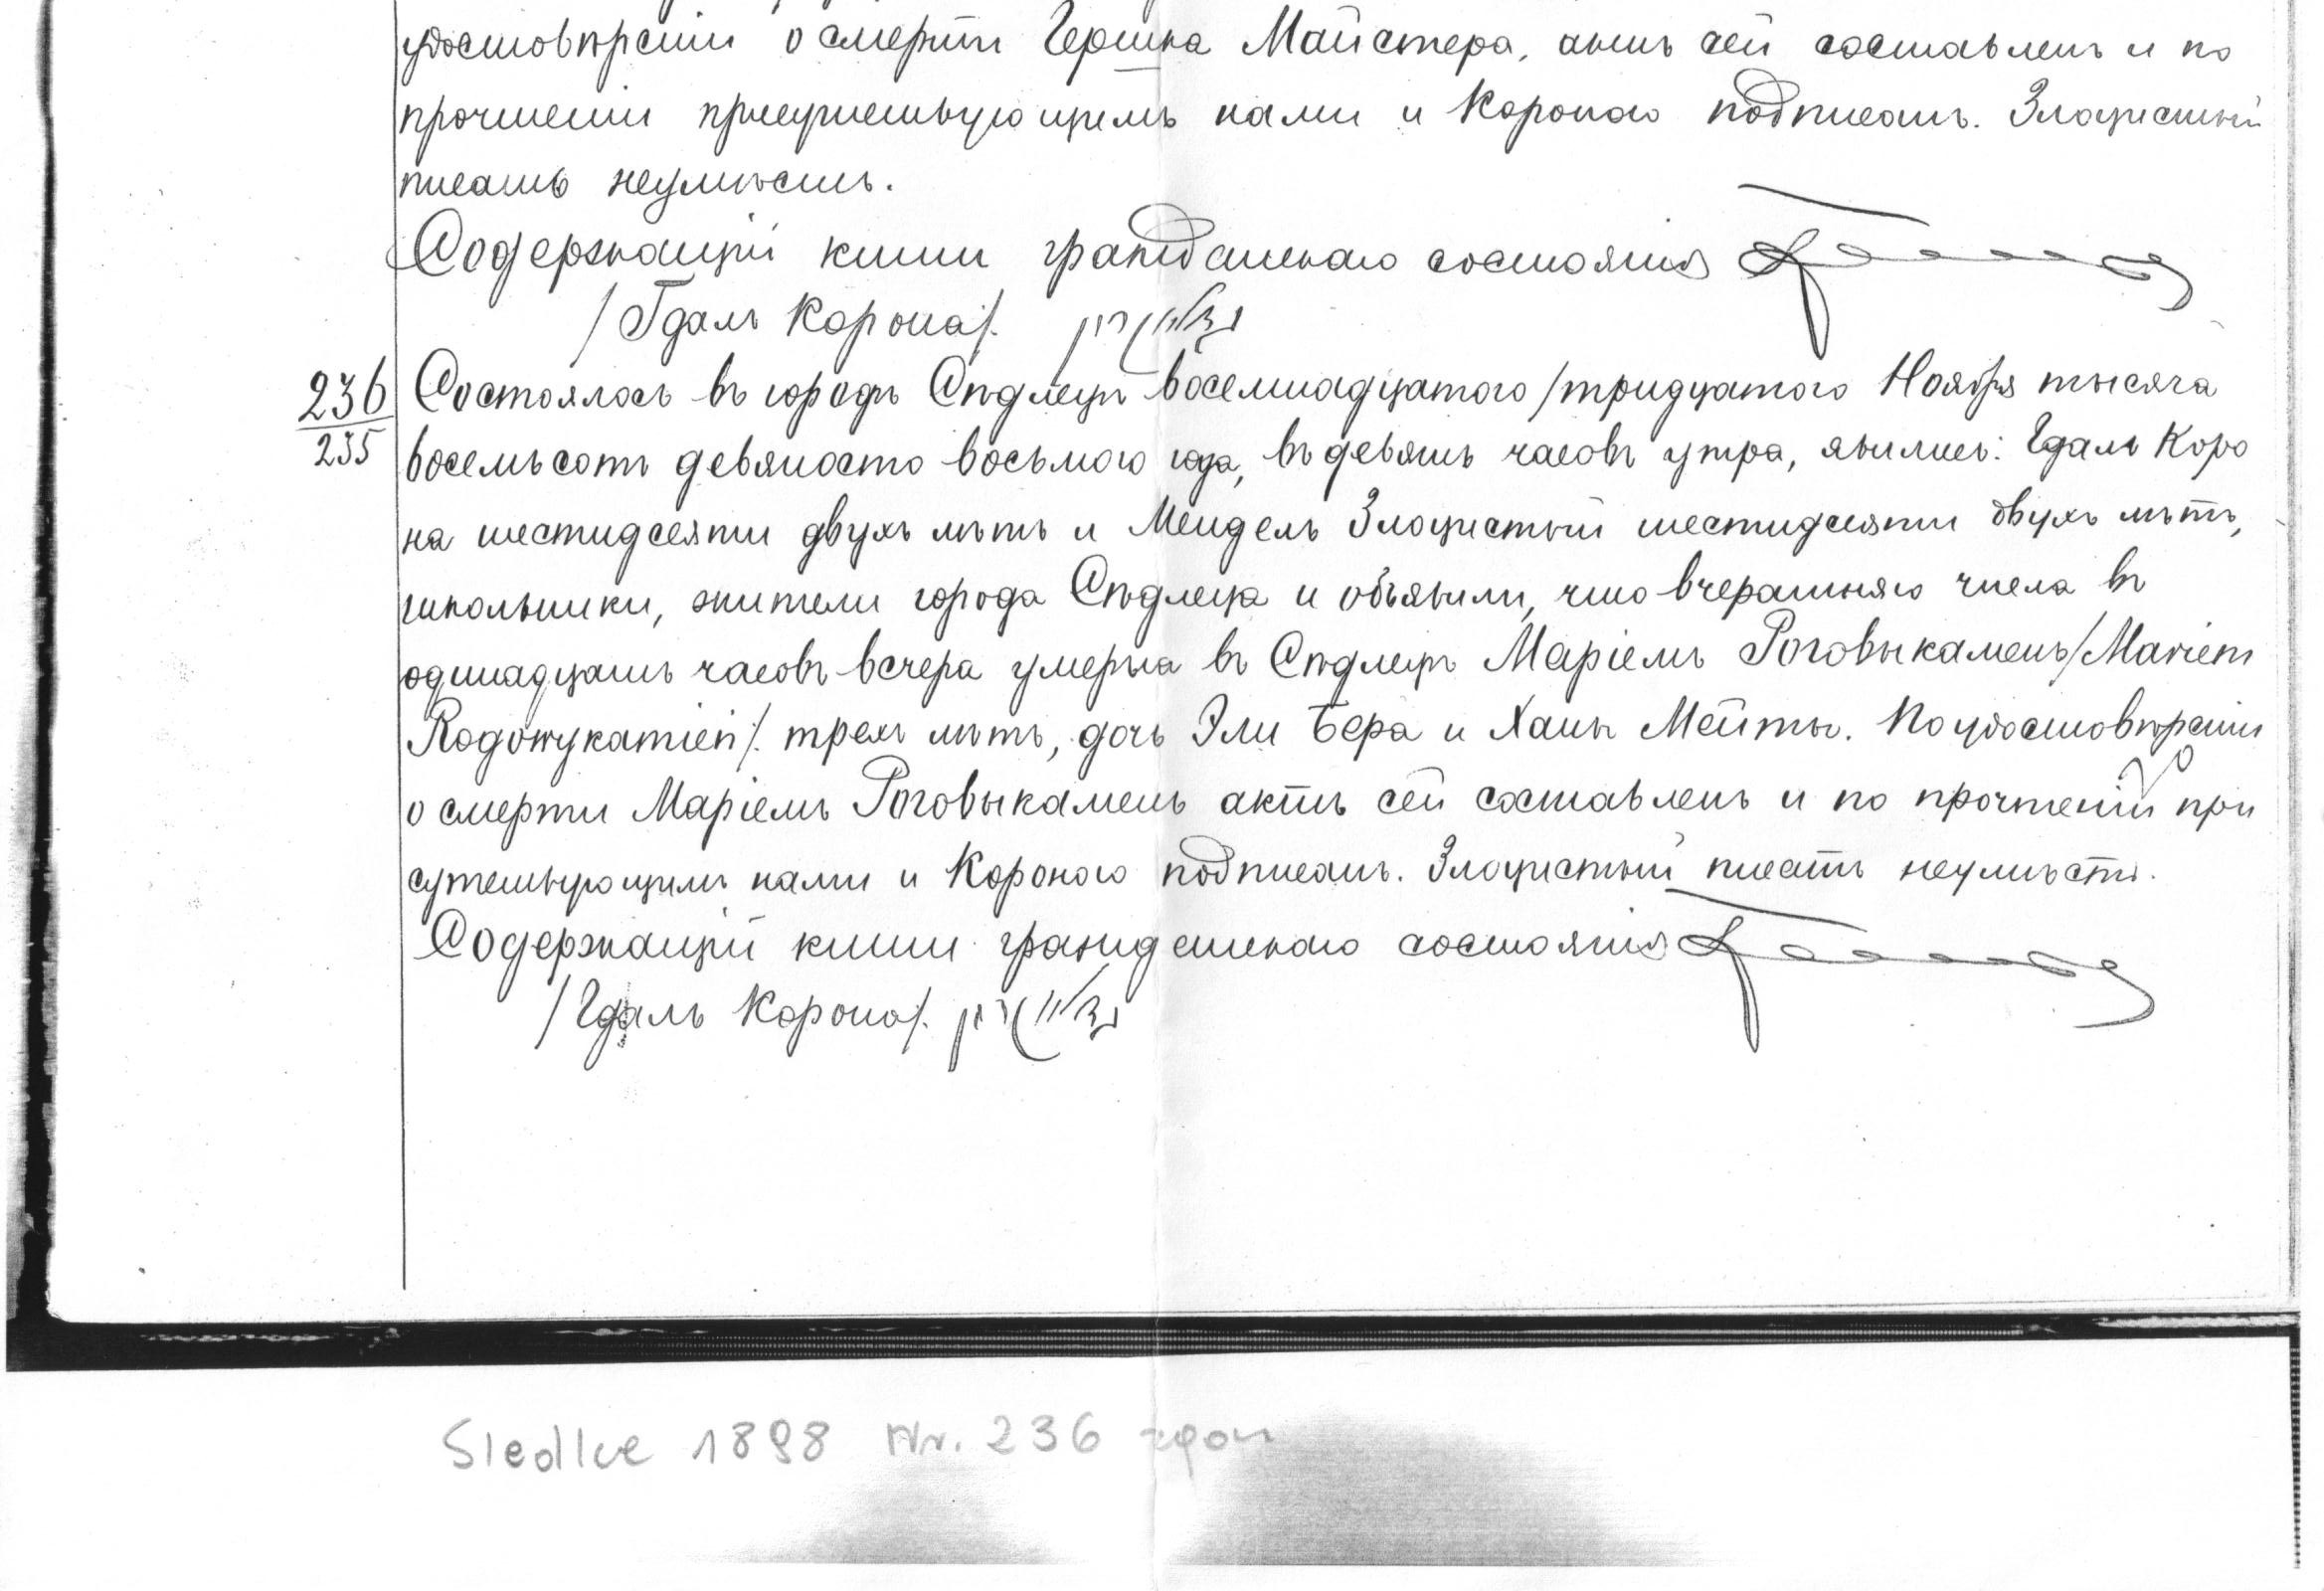 удостовѣреніи о смерти Гершка Майстера, актъ сей составленъ и по
прочтеніи присутствующимъ нами и Короною подписанъ. Злоцистый
писать неумѣетъ.
Содержащій книги гражданскаго состоянія
/Гдаль Корона/.
236
235
Состоялось въ городѣ Сѣдлецѣ восемнадцатого/тридцатого Ноября тысяча
восемьсотъ девяносто восьмого года, въ девять часовъ утра, явились: Гдаль Коро
на шестидсяти двухъ лѣтъ и Мендель Злоцистый шестидсяти двухъ лѣтъ,
школьники, жители города Сѣдлеца и объявили, что вчерашняго числа въ
одинадцать часовъ вечера умерла въ Сѣдлецѣ Маріемъ Роговыкамень/Mariem
Rogowykamień/. трехъ лѣтъ, дочь Эли Бера и Ханы Мейты. По удостовѣреніи
о смерти Маріемъ Роговыкамень актъ сей составленъ и по прочтеніи при
сутствующимъ нами и Короною подписанъ. Злоцистый писать неумѣетъ.
Содержащій книги гражданскаго состоянія
/Гдаль Корона/.
Siedlce 1898 Nr. 236 zgon